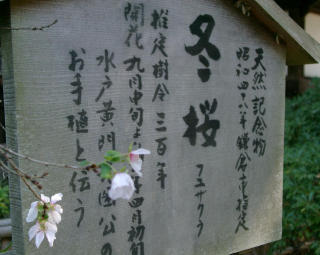 天然記念物
昭和四六年鎌倉市指定
冬桜
フユザクラ
推定樹令三百年
開花 九月中旬より 四月初旬
水戸黄門 国公の
お手植と伝う